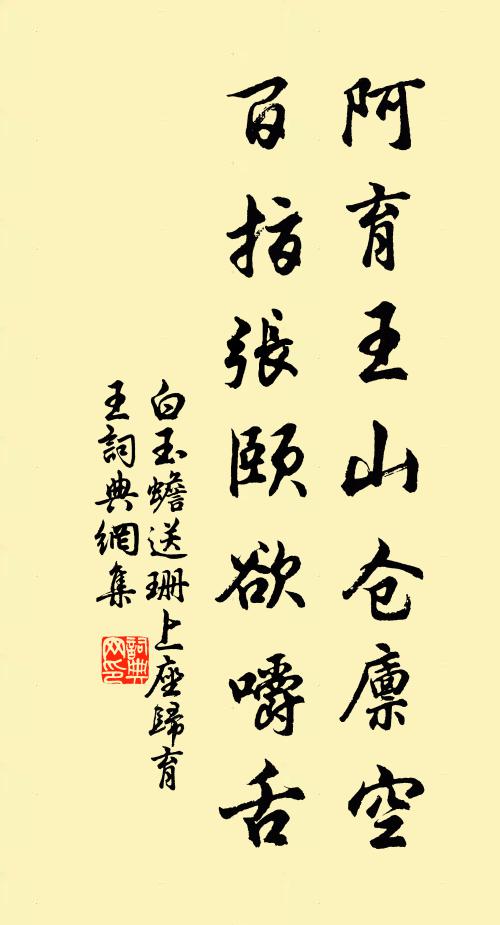 阿育王山仓廪空
百指張頤欲嚼舌
白玉蟾送珊上座歸育
王詞典網集
詞典网印